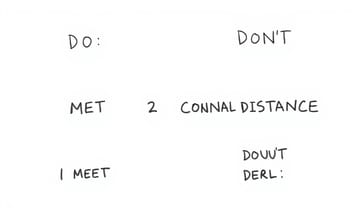 DO: DON'T
MET 2 CONNAL DISTANCE
1 MEET DOUU'T
DERL: